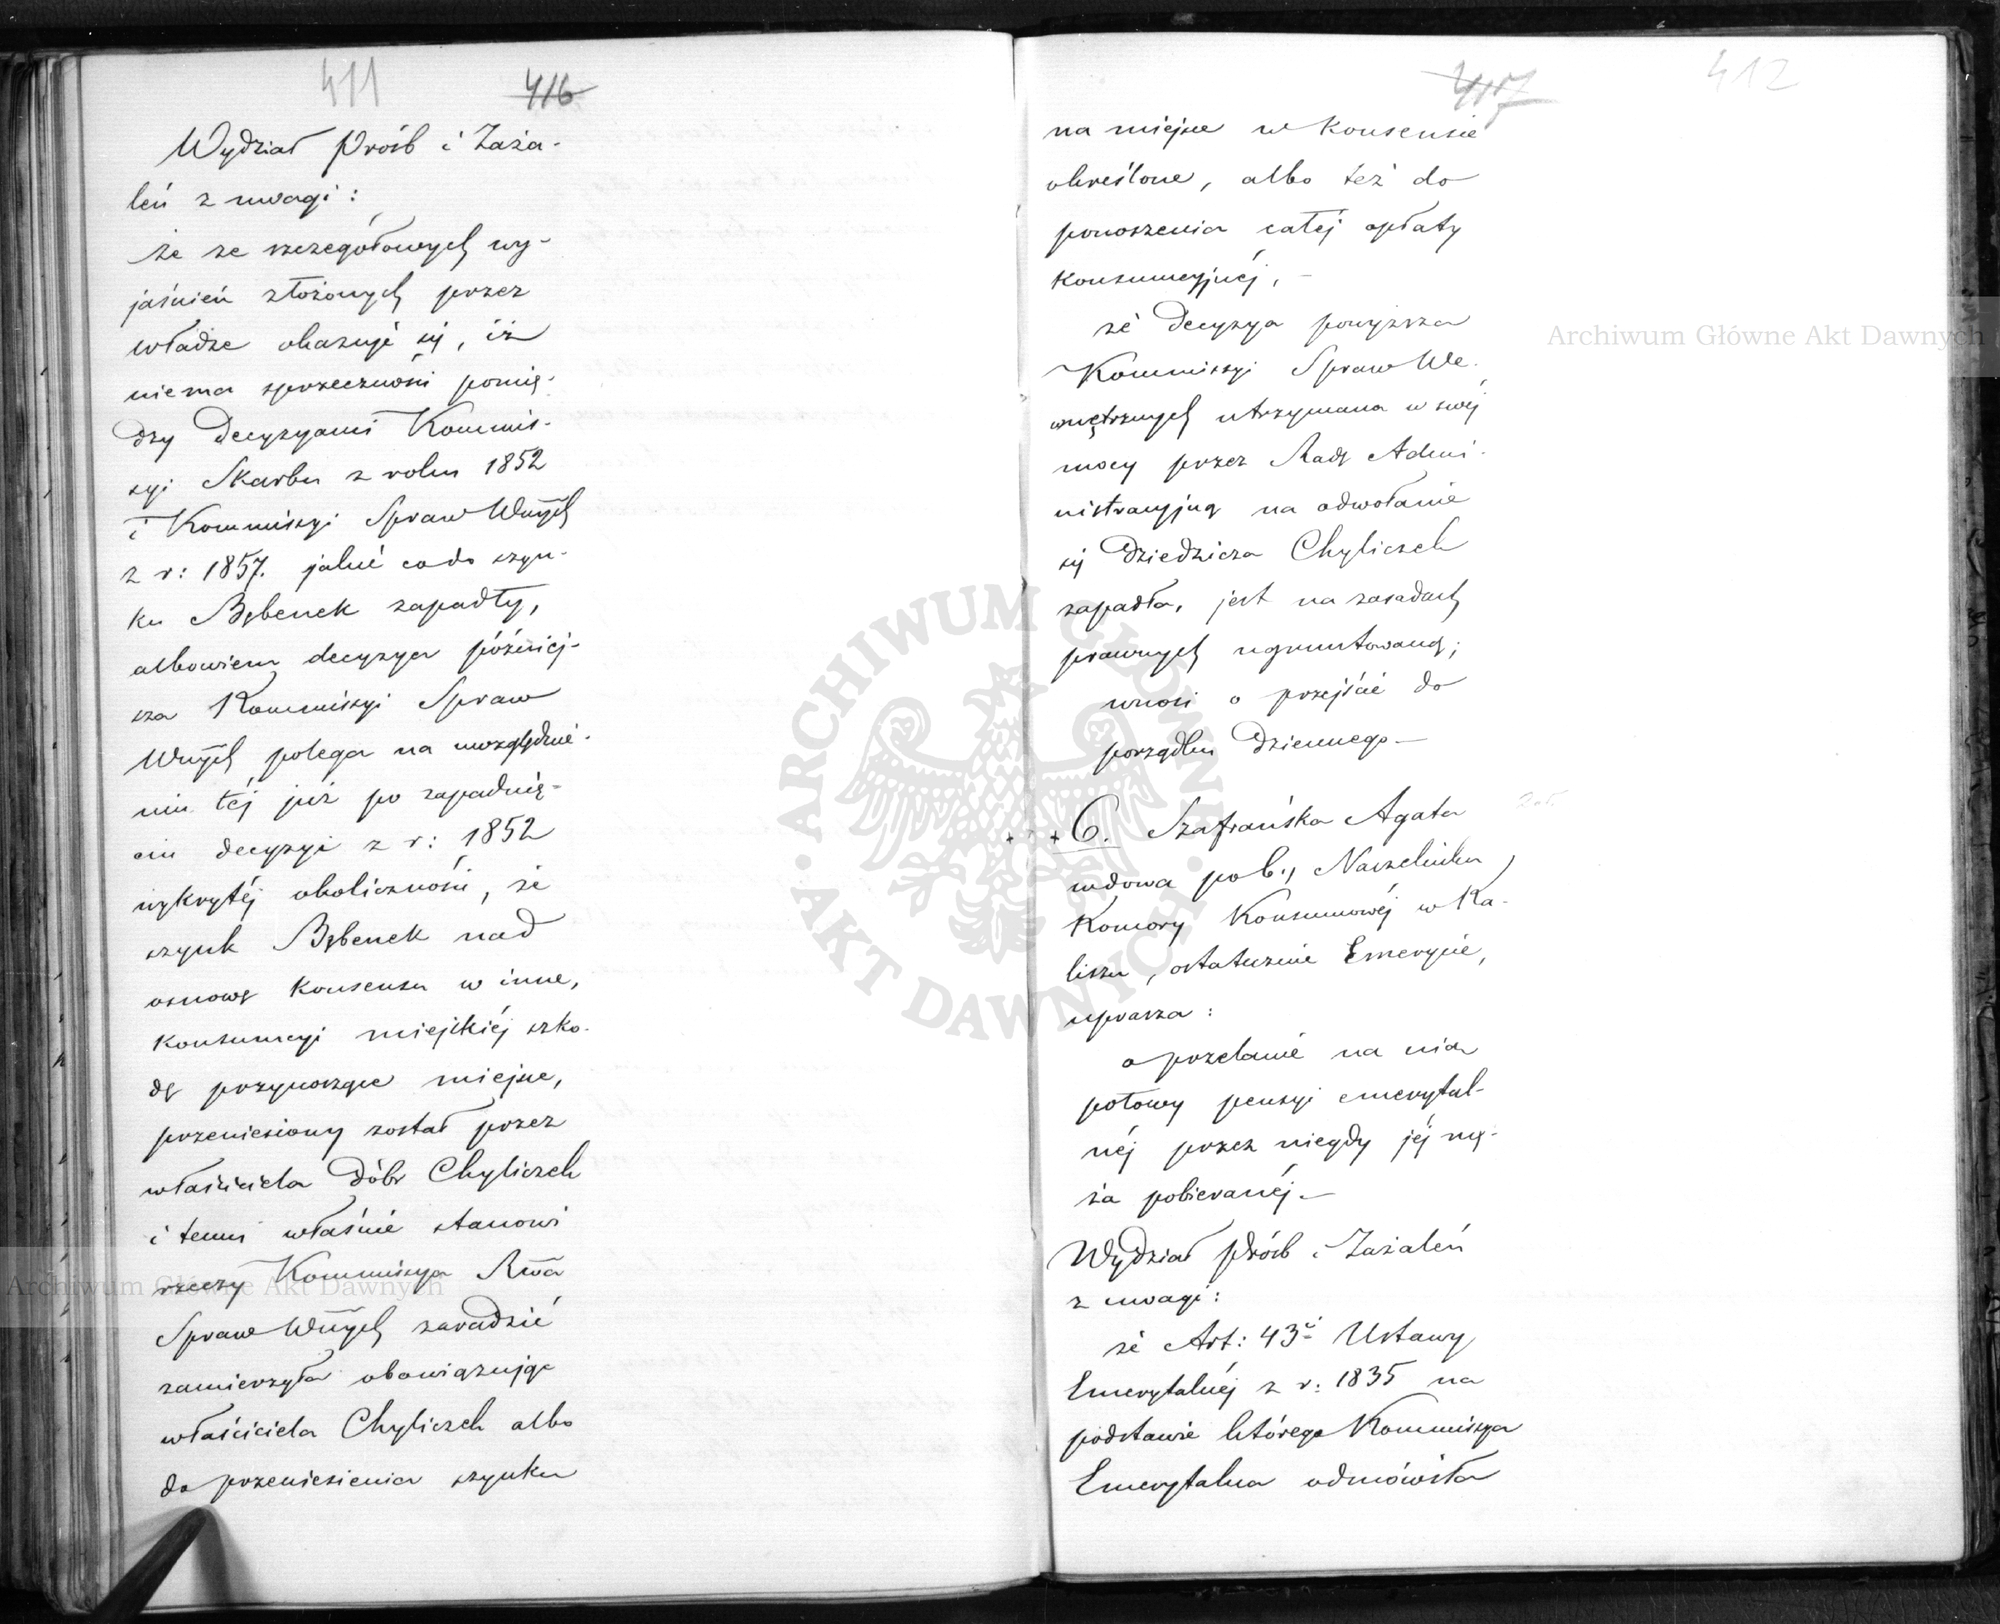 411 416
Wydział Próśb i Zaża-
leń z uwagi:
że ze szczegółowych wy-
jaśnień złożonych przez
władze okazuje się, iż
niema sprzeczności pomię-
dzy decyzyami Kommis-
syi Skarbu z roku 1852
i Kommissyi Spraw Wnych
z r: 1857. jakie codo szyn-
ku Bębenek zapadły,
albowiem decyzya późniéj-
sza Kommissyi Spraw
Wnych polega na uwzględnie-
niu téj już po zapadnię-
ciu decyzyi z r: 1852
wykrytéj okoliczności, że
szynk Bębenek nad
osnowę Konsensu w inne,
konsumcyi miejskiéj szko-
dę przynoszące miejsce,
przeniesiony został przez
właściciela dóbr Chyliczek
i temu właśnie stanowi
rzeczy Kommissya Rwa
Spraw Wnych zaradzić
zamierzyła obowiązując
właściciela Chyliczek albo
do przeniesienia szynku
417 412
na miejsce w Konsensie
określone, albo też do
ponoszenia całéj opłaty
konsumcyjnéj, –
że decyzya powyższa
Kommissyi Spraw We-
wnętrznych utrzymana w swéj
mocy przez Radę Admi-
nistracyjną na odwołanie
się dziedzica Chyliczek
zapadła, jest na zasadach
prawnych ugruntowaną;
wnosi o przejście do
porządku dziennego –
+ + 6. Szafrańska Agata
wdowa po b., Naczelniku
Komory Konsumowéj w Ka-
liszu, ostatecznie Emerycie,
uprasza:
o przelanie na nią
połowy pensyi emerytal-
néj przez niegdy jéj mę-
ża pobieranéj. –
Wydział Próśb i Zażaleń
z uwagi:
że Art: 43ci Ustawy
Emerytalnéj z r: 1835 na
podstawie którego Kommissya
Emerytalna odmówiła
Archiwum Główne Akt Dawnych
ARCHIWUM GŁÓWNE AKT DAWNYCH
Archiwum Główne Akt Dawnych